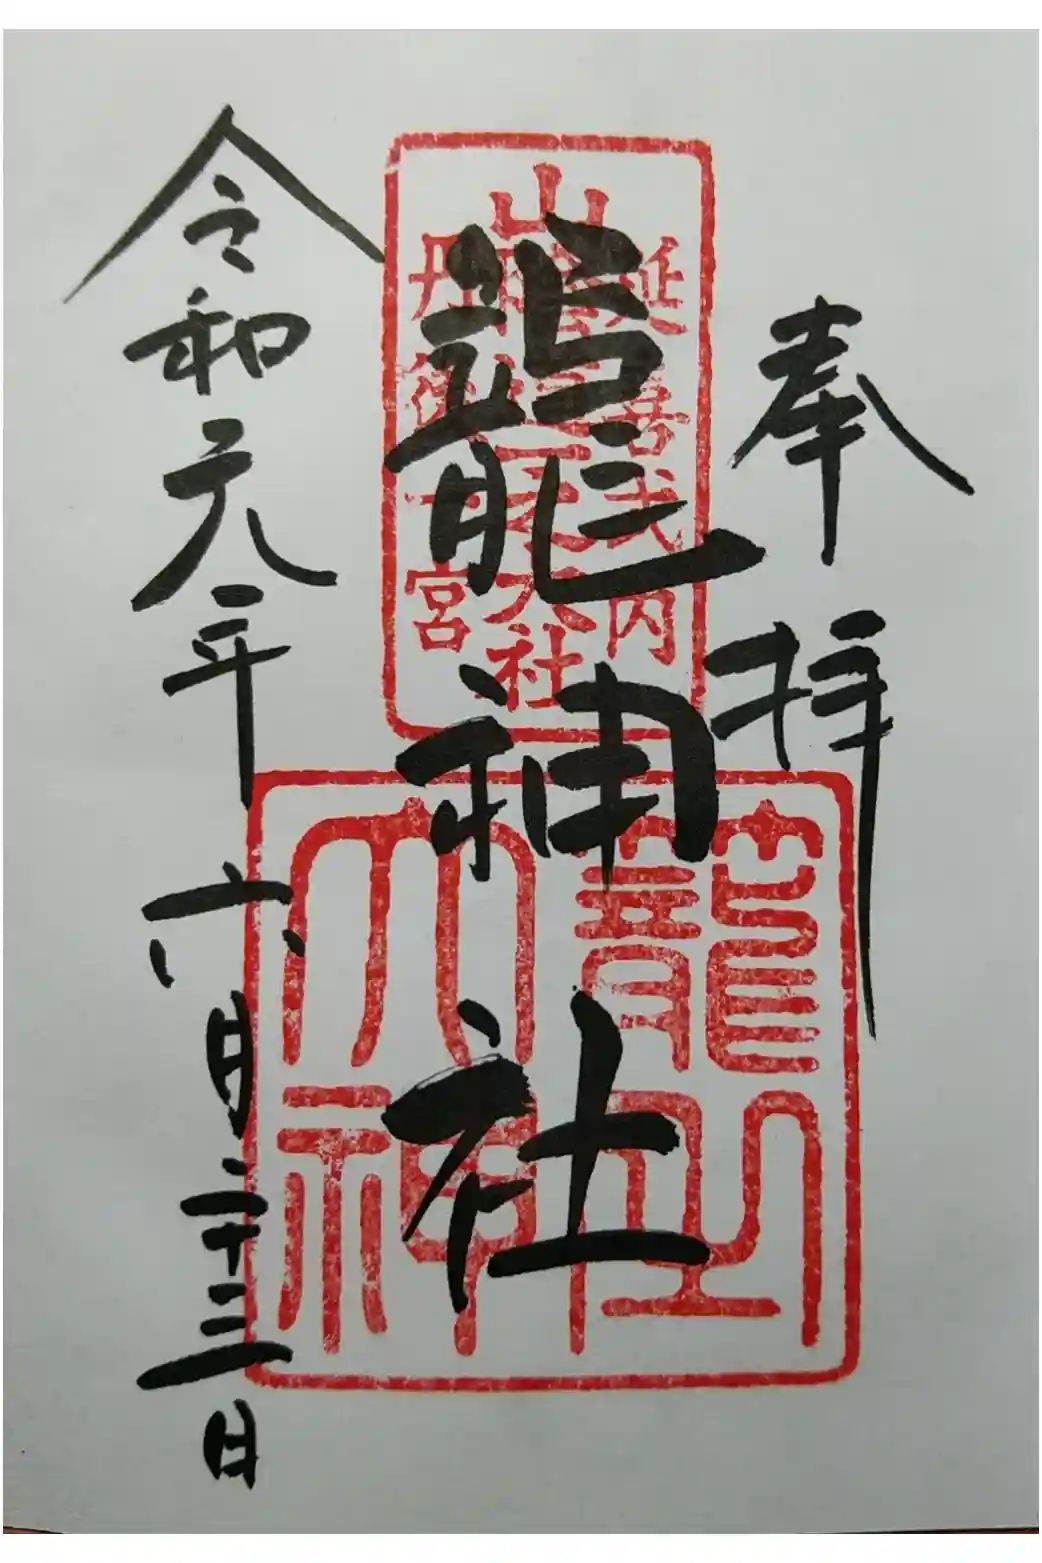 奉拝
延喜式内
山陰道一之大社
丹後一宮
籠神社
大神
令和元年六月二十三日